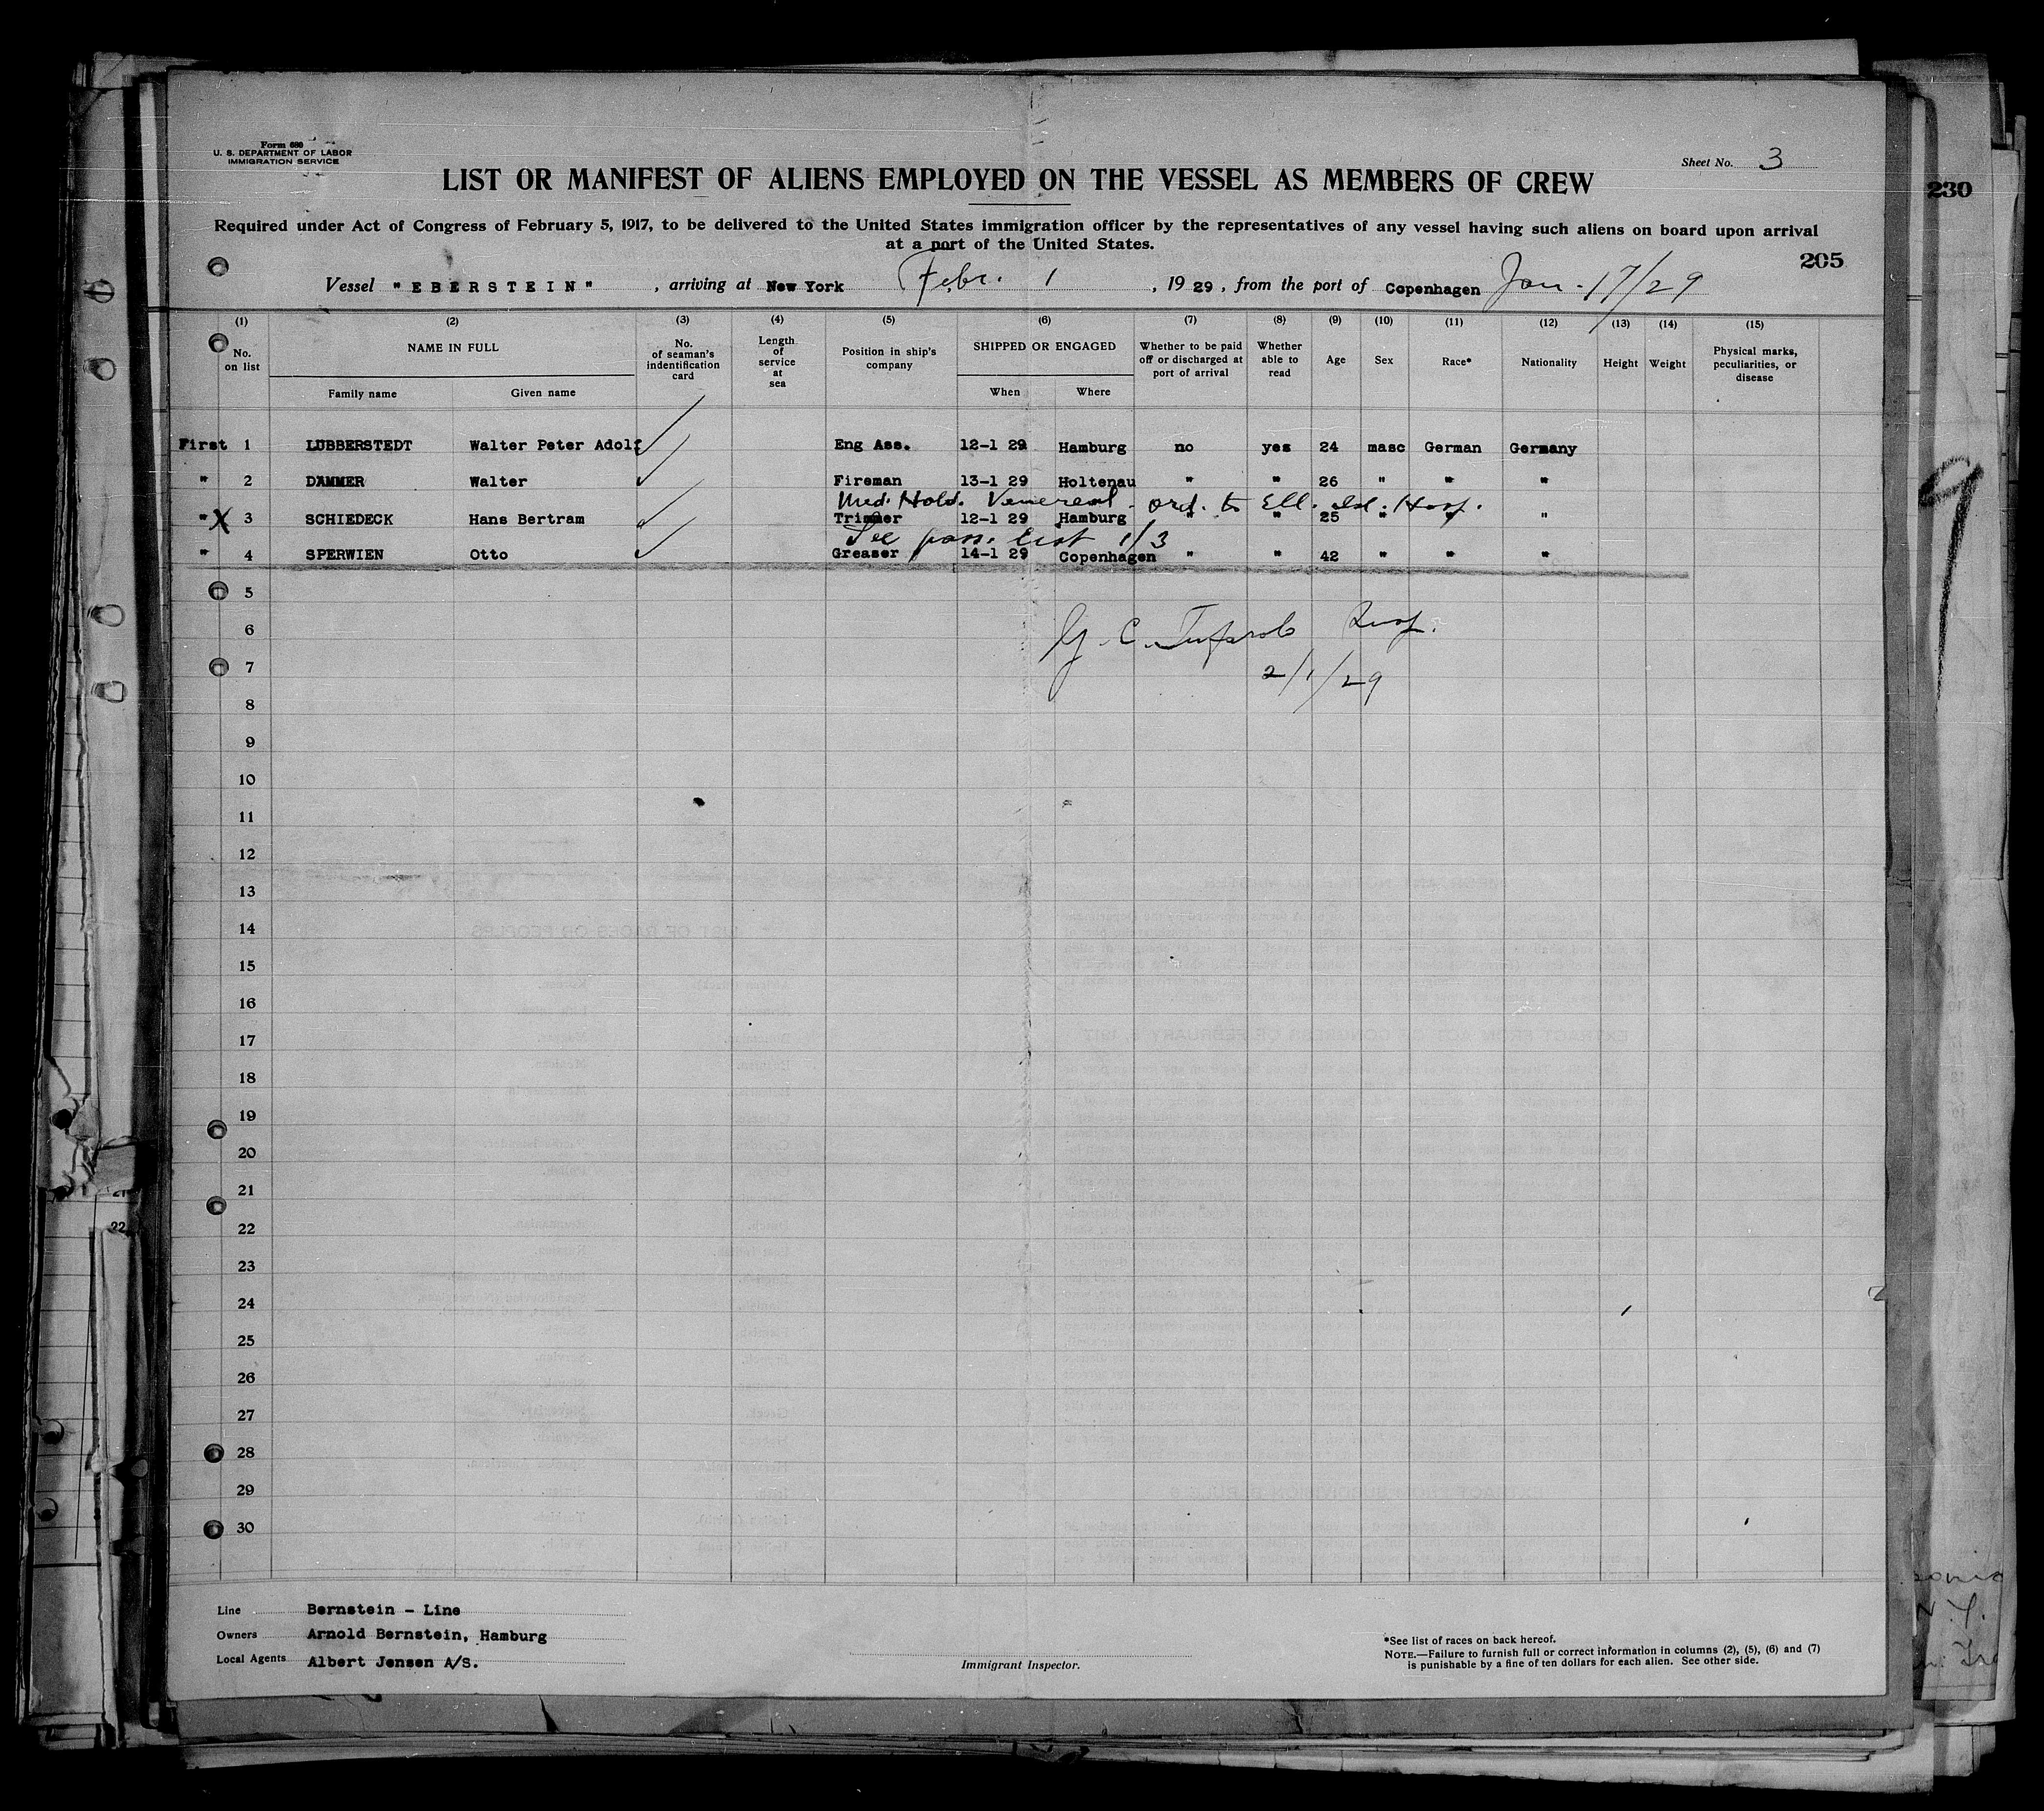 Form 680
U. S. DEPARTMENT OF LABOR
IMMIGRATION SERVICE
Sheet No. 3
LIST OR MANIFEST OF ALIENS EMPLOYED ON THE VESSEL AS MEMBERS OF CREW
230
Required under Act of Congress of February 5, 1917, to be delivered to the United States immigration officer by the representatives of any vessel having such aliens on board upon arrival
at a port of the United States.
205
Vessel "EBERSTEIN" , arriving at New York Febr. 1 , 19 29 , from the port of Copenhagen Jan - 17/29
(1) (2) (3) (4) (5) (6) (7) (8) (9) (10) (11) (12) (13) (14) (15)
No. on list NAME IN FULL Family name Given name No. of seaman's indentification card Length of service at sea Position in ship's company SHIPPED OR ENGAGED When Where Whether to be paid off or discharged at port of arrival Whether able to read Age Sex Race* Nationality Height Weight Physical marks, peculiarities, or disease
First 1 LUBBERSTEDT Walter Peter Adolf Eng Ass. 12-1 29 Hamburg no yes 24 masc German Germany
" 2 DAMMER Walter Fireman 13-1 29 Holtenau " " 26 " " "
Med. Hold. Venereal - ord. to Ell. Isl. Hosp.
" X 3 SCHIEDECK Hans Bertram Trimmer 12-1 29 Hamburg " " 25 " " "
See pass. list 1/3
" 4 SPERWIEN Otto Greaser 14-1 29 Copenhagen " " 42 " " "
5
G. C. Insp.
6
2/1/29
7
8
9
10
11
12
13
14
15
16
17
18
19
20
21
22
23
24
25
26
27
28
29
30
9
22
Line Bernstein - Line
Owners Arnold Bernstein, Hamburg
Local Agents Albert Jensen A/S.
Immigrant Inspector.
*See list of races on back hereof.
NOTE.—Failure to furnish full or correct information in columns (2), (5), (6) and (7)
is punishable by a fine of ten dollars for each alien. See other side.
N.Y.